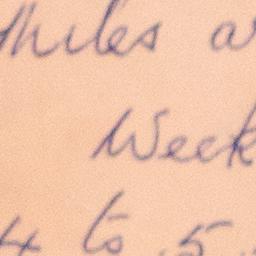 Miles a
Week
4 to 5